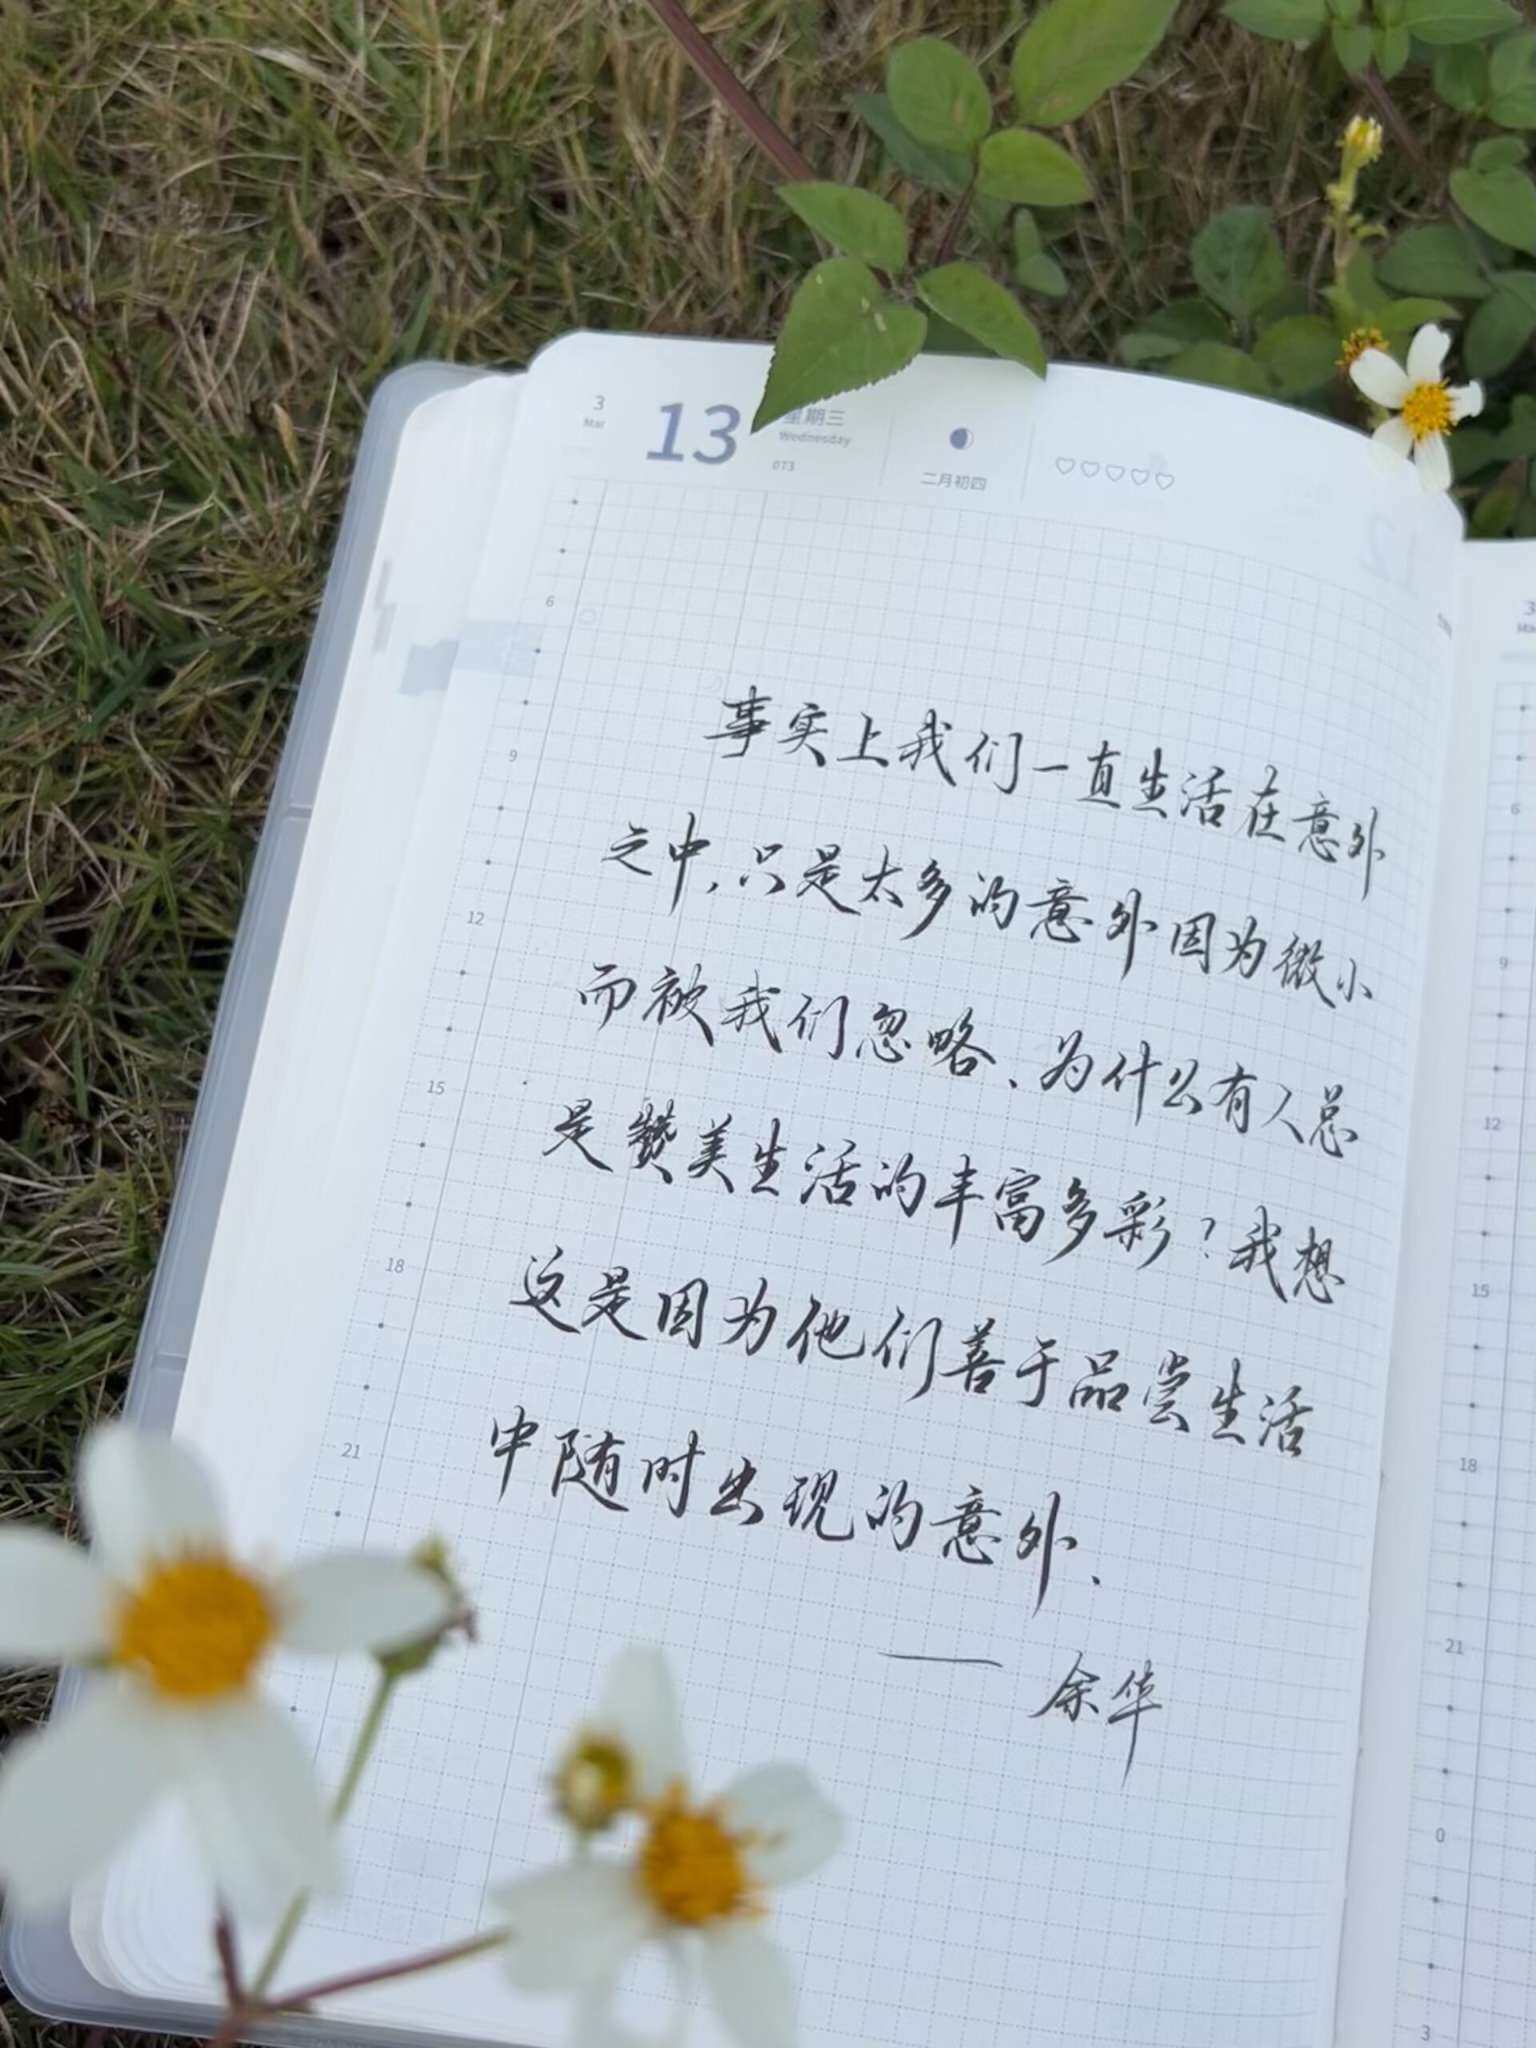 3
Mar
13
星期三
Wednesday
073
二月初四
6
9
12
15
18
21
事实上我们一直生活在意外
之中,只是太多的意外因为微小
而被我们忽略、为什么有人总
是赞美生活的丰富多彩?我想
这是因为他们善于品尝生活
中随时出现的意外、
—— 余华
3
6
9
12
15
18
21
0
3